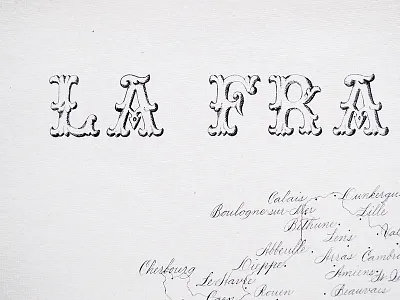 LA FRA
Calais Dunkerqu
Boulogne sur Mer Lille
Béthune
Lens Val
Abbeville Arras Cambra
Dieppe
Cherbourg Amiens St Q
Le Havre
Caen Rouen Beauvais